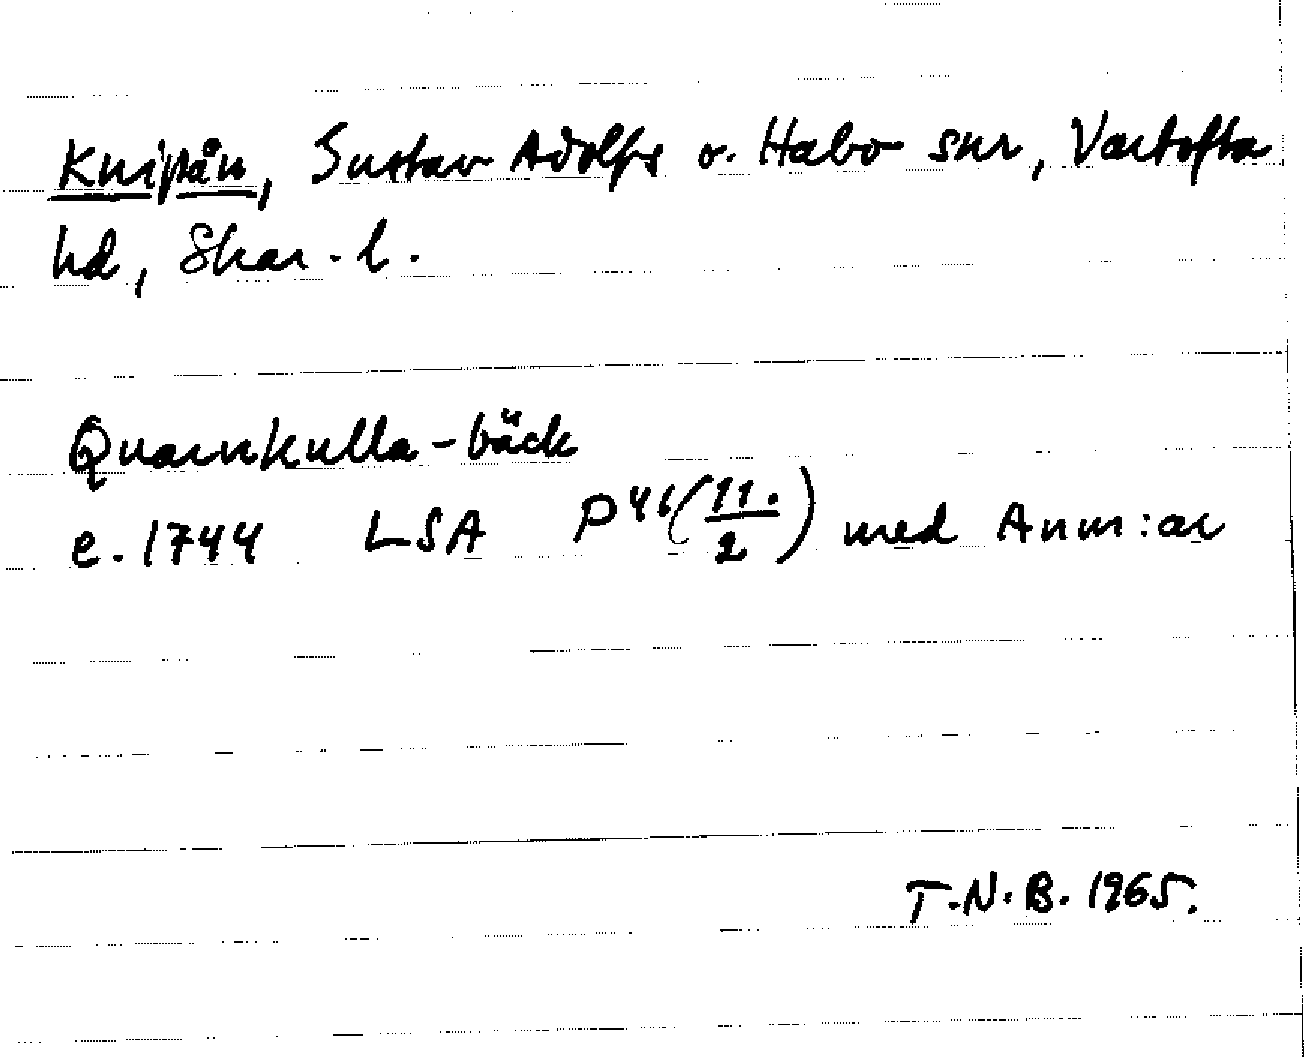 Knipån, Gustav Adolfs o. Habo snr, Vartofta
hd, Skar. l.
Quarnkulla-bäck
e. 1744 LSA P46(11:/2) med Anm:ar
T.N.B. 1965.